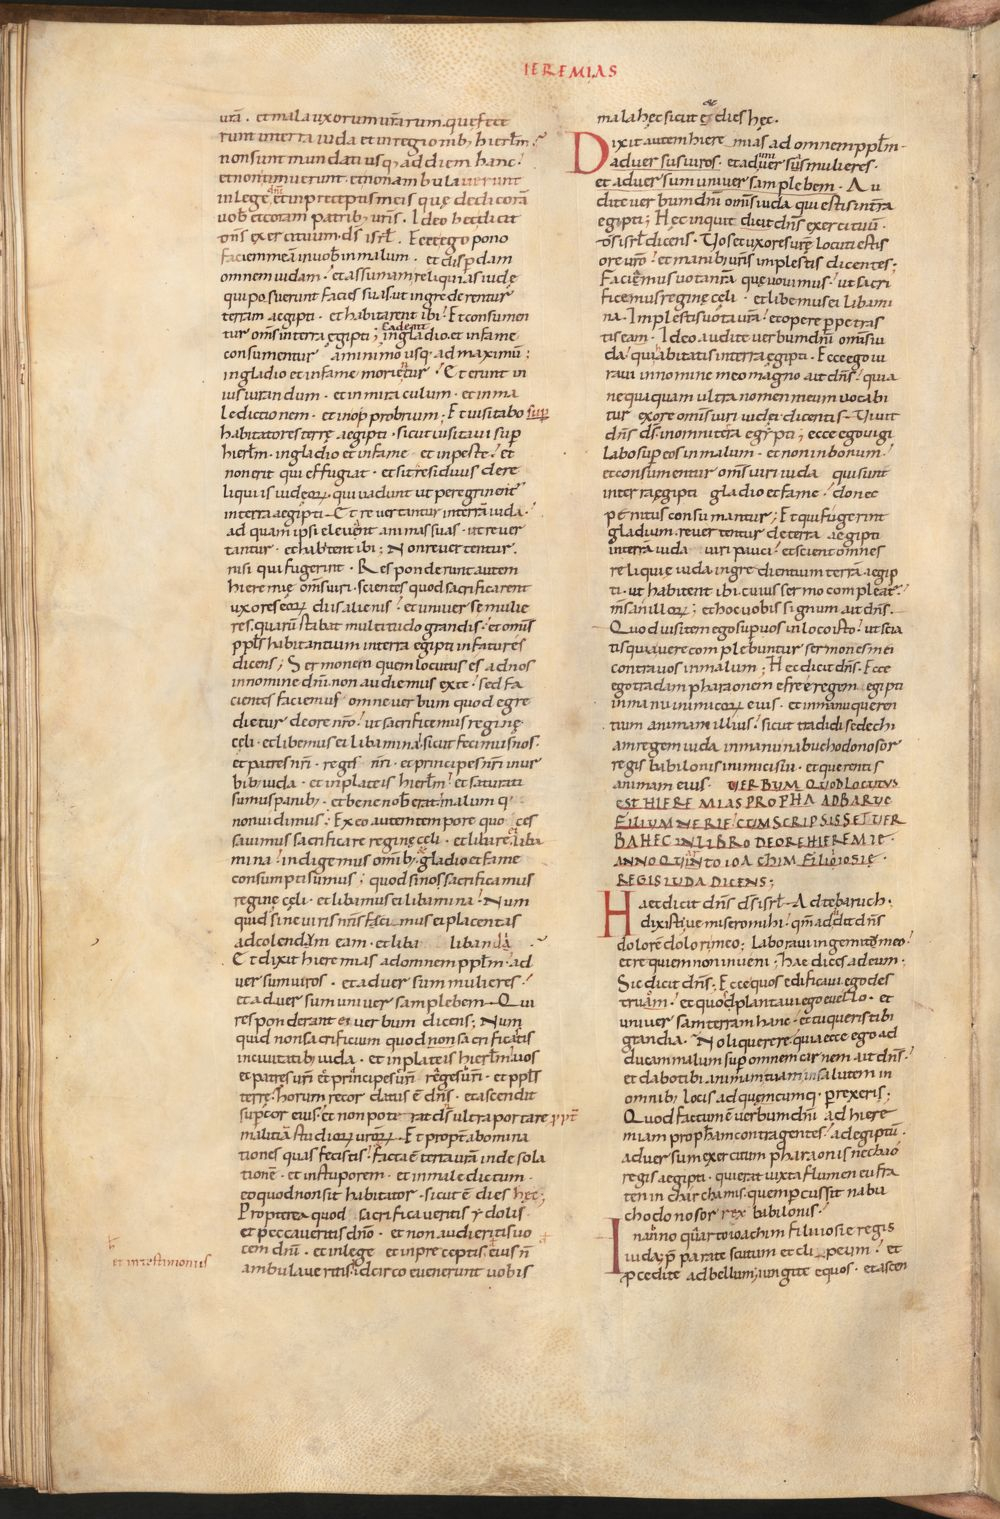 IEREMIAS
urā . et mala uxorum urarum. quę fece
runt in terra iuda et in regionib; hierlm.
non sunt mundati usq; ad diem hanc.
et non timuerunt. et non ambulauerunt
in lege dni et in preceptis meis quę dedi corā
uob et coram patrib; uris. Ideo hec dicit
dns exercituum. ds isrl. Ecce ego pono
faciem meā in uob in malum. et disperdam
omnem iudam. et assumam reliquias iudę
qui posuerunt facies suas. ut ingrederentur
terram aegipti. et habitarent ibi. Et consumen
tur oms in terra egipti; cadent in gladio. et in fame
consumentur a minimo usq; ad maximū;
in gladio et in fame morientur. Et erunt in
iusiurandum. et in miraculum. et in ma
ledictionem. et in opprobrium; Et uisitabo sup
habitatores terrę aegipti. sicut uisitaui sup
hierlm. in gladio et in fame et in peste. et
non erit qui effugiat. et sit residuus de re
liquiis iudeoꝝ. qui uadunt ut peregrinent
in terra aegipti. Et reuertantur in terrā iuda.
ad quam ipsi eleuant animas suas. ut reuer
tantur. et habitent ibi; Non reuertentur.
nisi qui fugerint. Responderunt autem
hieremię oms uiri. scientes quod sacrificarent
uxores eoꝝ diis alienis. et uniuerse mulie
res. quarū stabat multitudo grandis. et oms
ppls habitantium in terra egipti in fatures
dicens; Sermonem quem locutus es ad nos
in nomine dni. non audiemus ex te. sed fa
cientes faciemus omne uerbum quod egre
dietur de ore nro. ut sacrificemus reginę
cęli. et libemus ei libamina. sicut fecimus nos.
et patres nri. reges nri. et principes nri in ur
bib; iuda. et in plateis hierlm. et saturati
sumus panib;. et bene nob erat. malum q;
non uidimus; Ex eo autem tempore quo ces
sauimus sacrificare reginę cęli. et libare ei liba
mina. indigemus omib; et gladio et fame
consumpti sumus; quod si nos sacrificamus
reginę cęli. et libamus ei libamina. Num
quid sine uiris nris fecimus ei placentas
ad colendam eam. et liba libanda.
Et dixit hieremias ad omnem pplm. ad
uersum uiros. et aduersum mulieres.
et aduersum uniuersam plebem. Qui
responderant ei uerbum dicens; Num
quid non sacrificium quod non sacrificatis
in ciuitatib; iuda. et in plateis hierlm. uos
et patres uri et principes uri reges uri. et ppls
terre. horum recordatus ē dns. et ascendit
sup cor eius. et non poterat dns ultra portare ppt
malitiā studioꝝ uroꝝ. Et propt abomina
tiones quas fecistis. Facta ē terra urā in desola
tionē. et in stuporem. et in maledictum.
eo quod non sit habitator. sicut ē dies hęc;
Propterea quod sacrificaueritis ydolis
et peccaueritis dno. et non audieritis uo
cem dni. et in lege et in preceptis eius n̄
et in testimoniis
ambulaueritis. idcirco euenerunt uobis
mala hęc sicut et dies hęc.
Dixit autem hieremias ad omnem pplm.
aduersus uiros. et aduersus mulieres.
et aduersum uniuersam plebem. Au
dite uerbum dni oms iuda qui estis in tra
egipti; Hec inquit dicit dns exercituum.
ds isrl dicens. Uos et uxores urę locuti estis
ore uro. et manib; uris implestis dicentes;
Faciemus uota nrā que uouimus. ut sacri
ficemus reginę cęli. et libemus ei libami
na. Implestis uota urā. et opere perpetras
tis eam. Ideo audite uerbum dni oms iu
da qui habitatis in terra egipti. Ecce ego iu
raui in nomine meo magno ait dns. quia
nequaquam ultra nomen meum uocabi
tur ex ore omis uiri iudei dicentis. Uiuit
dns ds. in omni terra egypti; ecce ego uigi
labo sup eos in malum. et non in bonum.
et consumentur oms uiri iuda qui sunt
in terra egipti gladio et fame. donec
penitus consumantur; Et qui fugerint
gladium. reuertentur de terra aegipti
in terrā iuda uiri pauci. et scient omnes
reliquię iuda ingredientium terrā aegip
ti. ut habitent ibi. cuius sermo compleat.
ms an illoꝝ; et hoc uobis signum ait dns.
Quod uisitem ego sup uos in loco isto. ut scia
tis quia uere complebuntur sermones mei
contra uos in malum; Hec dicit dns. Ecce
ego tradam pharaonem efreę regem egipti
in manu inimicoꝝ eius. et in manu queren
tium animam illius. sicut tradidi sedechi
am regem iuda in manu nabuchodonosor
regis babilonis inimici sui. et querentis
animam eius. UERBUM QUOD LOCUTUS
EST HIEREMIAS PROPHA AD BARUC
FILIUM NERIE. CUM SCRIPSISSET UER
BA HEC IN LIBRO DE ORE HIEREMIE.
ANNO QUARTO IOACHIM FILII IOSIE
REGIS IUDA DICENS;
Haec dicit dns ds isrl. Ad te baruch.
dixisti ue misero mihi. qm addidit dns
dolorē dolori meo; Laboraui in gemitu meo.
et requiem non inueni; hae dices ad eum.
Sic dicit dns; Ecce quos edificaui ego des
truam. et quos plantaui ego euello. et
uniuersam terram hanc. et tu queris tibi
grandia. Noli querere. quia ecce ego ad
ducam malum sup omnem carnem. ait dns.
et dabo tibi animam tuam in salutem in
omnib; locis ad quemcumq; perrexeris;
Quod factum ē uerbum dni ad hiere
miam propham contra gentes. ad egiptū.
aduersum exercitum pharaonis nechao
regis aegipti. qui erat iuxta flumen eufra
ten in charchamis. quem percussit nabu
chodonosor rex babilonis.
In anno quarto ioachim filii iosie regis
iuda; pparate scutum et clipeum. et
pcedite ad bellum; iungite equos. et ascen